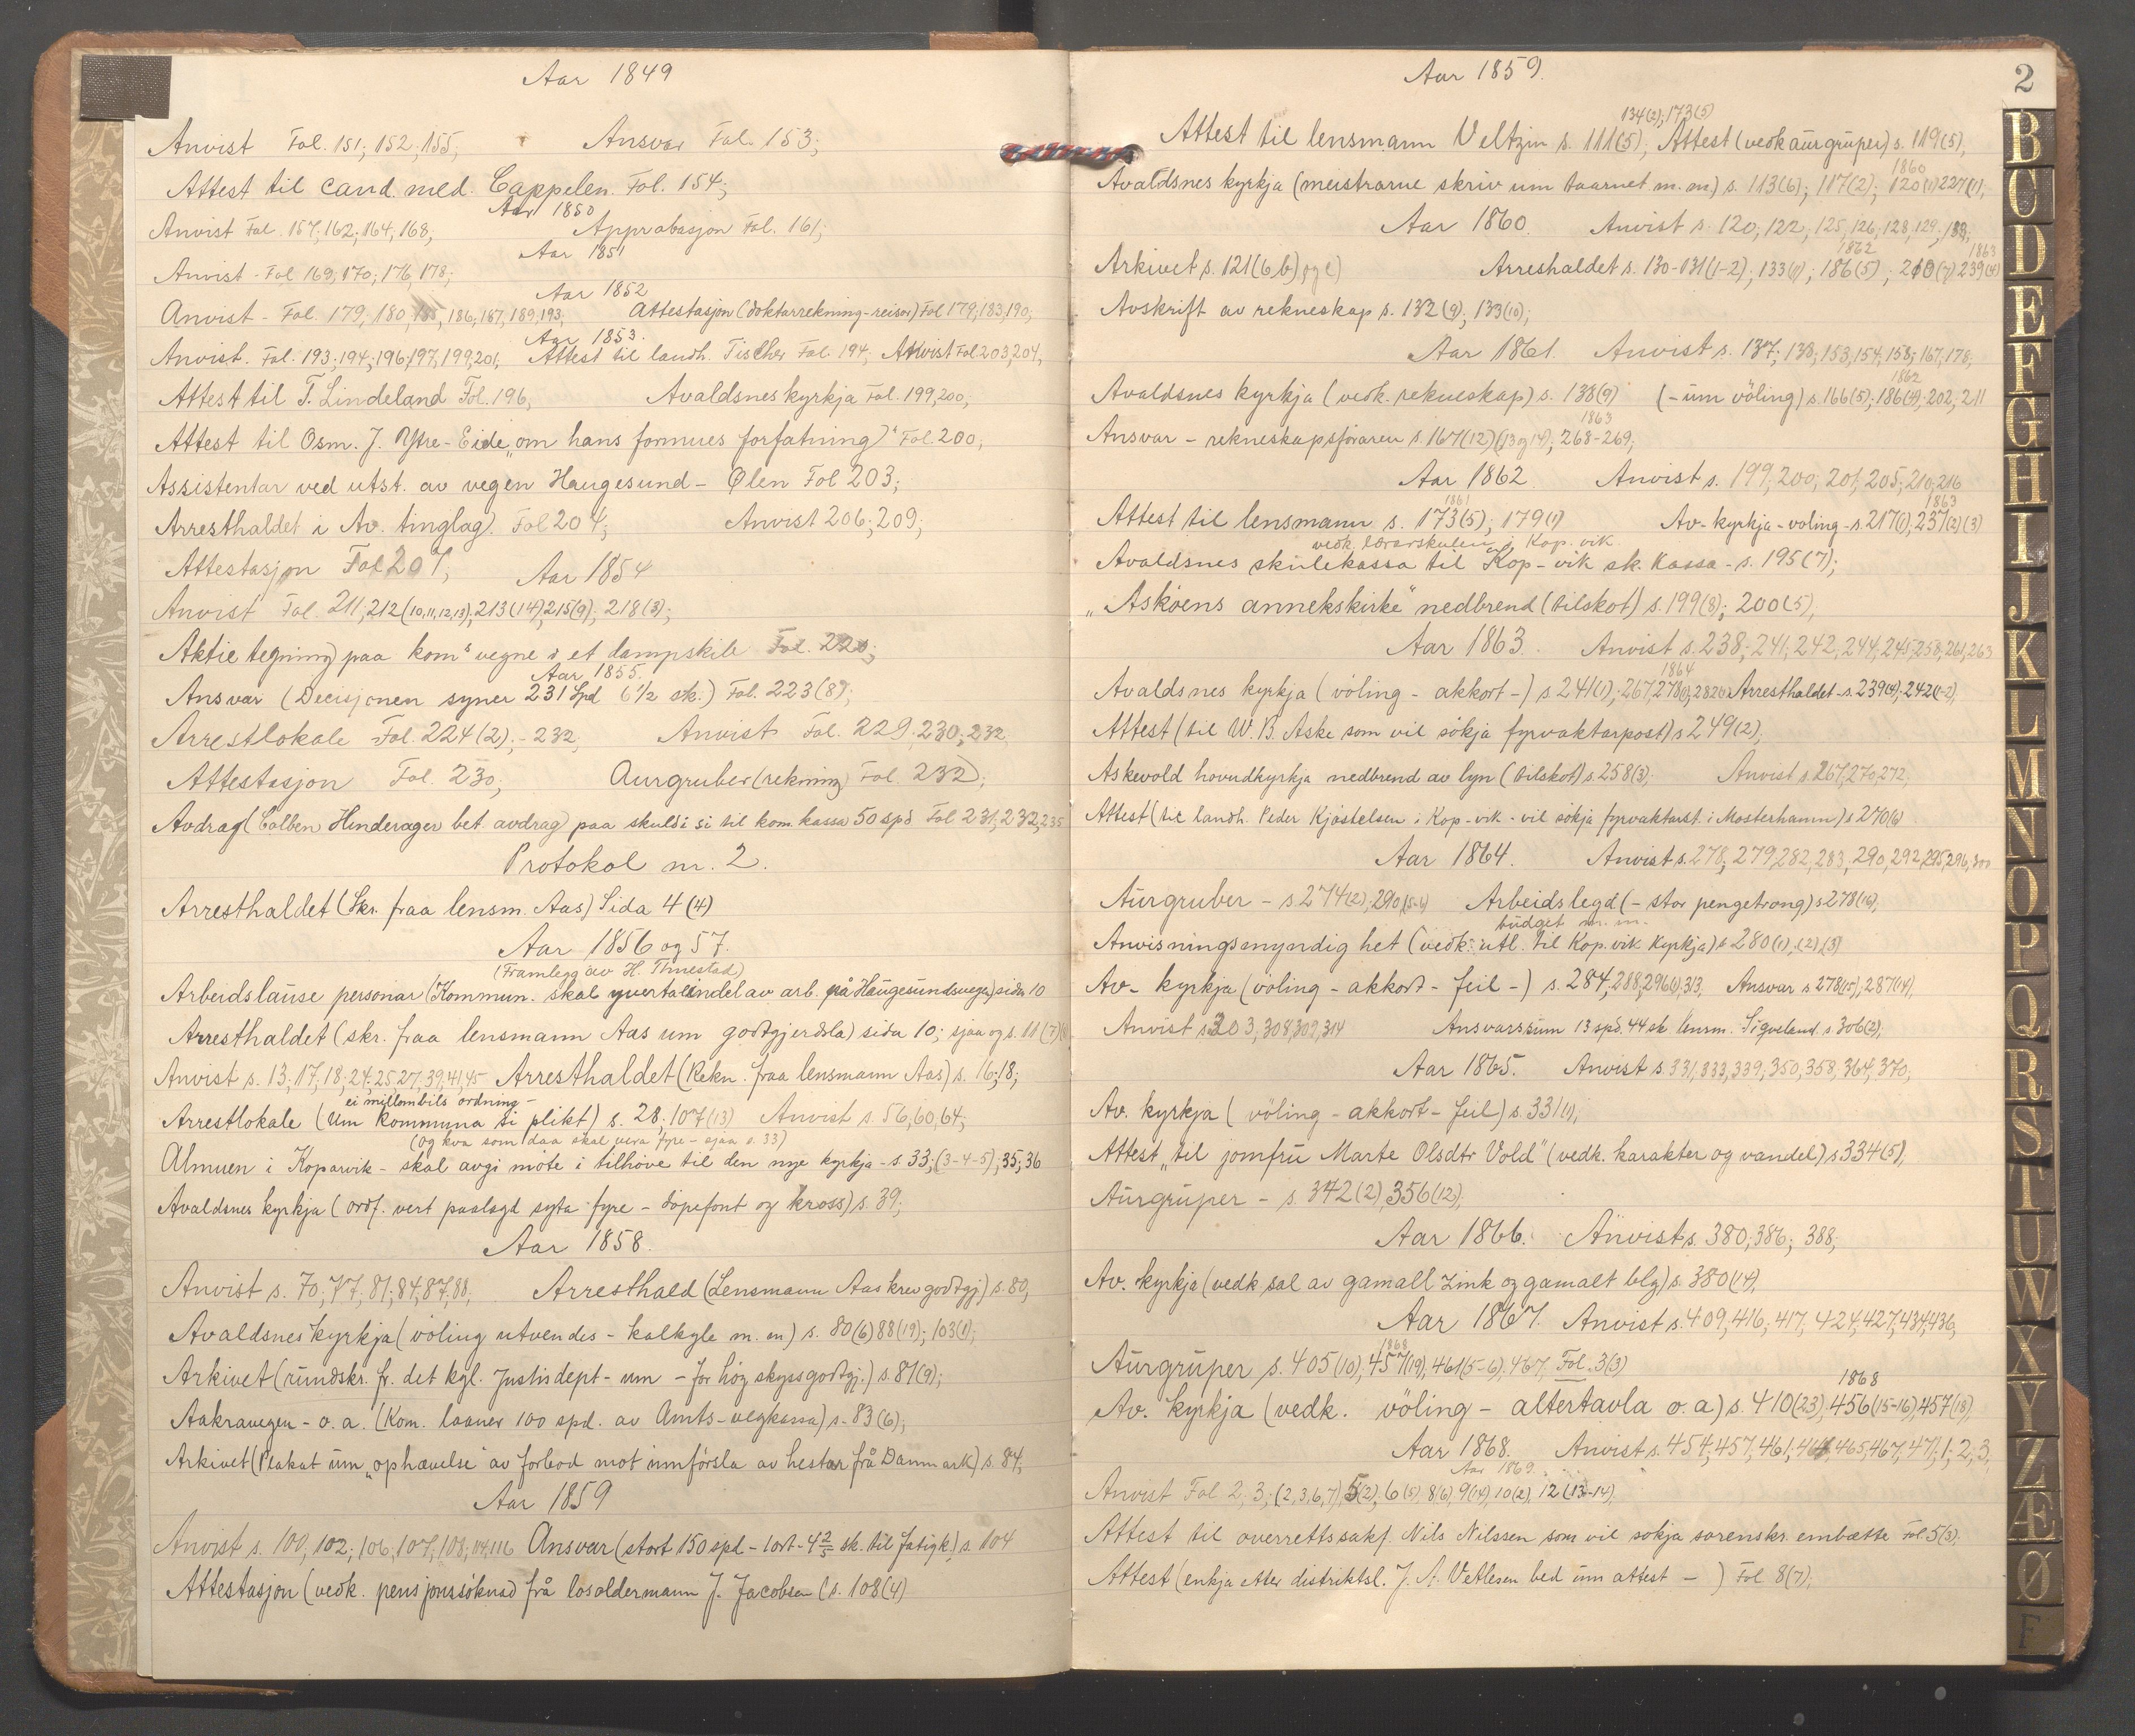 Aar 1849
Anvist Fol. 151; 152; 155; Ansvar Fol. 153;
Attest til cand. med. Cappelen. Fol. 154;
Aar 1850
Anvist Fol. 157, 162; 164, 168; Approbasjon Fol. 161;
Aar 1851
Anvist - Fol 169, 170; 176, 178;
Aar 1852
Anvist - Fol. 179, 180, 185, 186, 187, 189, 193, Attestasjon (doktarrekning-reiser) Fol 179, 183, 190,
Aar 1853.
Anvist. Fol. 193; 194; 196, 197, 199, 201; Attest til landh. Tischer Fol. 194; Anvist Fol 203, 204,
Attest til T. Lindeland Fol. 196, Avaldsnes kyrkja Fol. 199, 200,
Attest til Osm. J. Ytre-Eide „om hans formues forfatning)“ Fol. 200,
Assistentar ved utst. av vegen Haugesund - Ølen Fol 203;
Arresthaldet i Av. tinglag). Fol 204; Anvist 206; 209;
Attestasjon Fol 207;
Aar 1854
Anvist Fol. 211, 212 (10,11,12,13); 213 (14), 215 (9); 218 (3);
Aktie tegning) paa koms vegne i et dampskib Fol. 220;
Aar 1855.
Ansvar (Decisjonen syner 231 Spd 6 1/2 sk.) Fol. 223 (8);
Arrestlokale Fol. 224 (2); - 232, Anvist Fol. 229, 230; 232
Attestasjon Fol. 230; Aurgruber (rekning) Fol. 232;
Avdrag (Colben Hinderager bet. avdrag) paa skuld i si til kom. kassa 50 spd Fol 231, 232, 235
Protokol nr. 2.
Arresthaldet (Skr. fraa lensm. Aas) Sida 4 (4)
Aar 1856 og 57.
(Framlegg av H. Thuestad)
Arbeidslause personar (Kommun. skal yverta ein del av arb. på Haugesundsvegen) sida 10
Arresthaldet (skr. fraa lensmann Aas um godtgjerdsla) sida 10; sjaa og s. 11 (7)
Anvist s. 13; 17, 18, 24, 25, 27, 39, 41, 45 Arresthaldet (Rekn. fraa lensmann Aas) s. 16; 18;
ei millombils ordning -
Arrestlokale (um kommuna si plikt) s. 28; 107 (13) Anvist s. 56, 60, 64;
(og kva som daa skal vera fyre - sjaa s. 33)
Almuen i Koparvik - skal avgi møte i tilhøve til den nye kyrkja - s. 33; (3-4-5); 35; 36
Avaldsnes kyrkja (ordf. vert paalagd syta fyre - døpefont og kross) s. 39;
Aar 1858.
Anvist s. 70; 77; 81; 84, 87, 88, Arresthald (Lensmann Aas krev godtgj) s. 80,
Avaldsnes kyrkja (vøling utvendes - kalkyle m. m) s. 80 (6) 88 (19); 103 (1);
Arkivet (rundskr. fr. det kgl. Justisdept - um - for høg skyssgodtgj.) s. 81 (9);
Aakravegen - o. a. (Kom. laaner 100 spd. av Amts-vegkassa) s. 83 (6);
Arkivet (Plakat um „ophævelse“ av forbod mot innførsla av hestar frå Danmark) s. 84;
Aar 1859
Anvist s. 100, 102; 106, 107, 108, 114, 116 Ansvar (stort 150 spd - 1 ort - 4 2/5 sk. til fatigk.) s. 104
Attestasjon (vedk. pensjonssøknad frå losoldermann J. Jacobsen (s. 108 (4)
2
Aar 1859.
134 (2); 173 (5)
Attest til lensmann Veltzin s. 111 (5); Attest (vedk aurgruper) s. 119 (5),
1860
Avaldsnes kyrkja (meistrarne skriv um taarnet m. m) s. 113 (6); 117 (2); 120 (1) 227 (1),
Aar 1860. Anvist s. 120, 122, 125, 126, 128, 129,
1862 1863
Arkivet s. 121 (6, b) Arreshaldet s. 130-131 (1-2); 133 (11); 186 (5); 210 (7) 239 (4)
Avskrift av rekneskap s. 132 (9); 133 (10);
Aar 1861. Anvist s. 137; 138; 153, 154, 158; 167, 178,
1862
Avaldsnes kyrkja (vedk. rekneskap) s. 138 (9) (- um vøling) s. 166 (5); 186 (4); 202, 211
1863
Ansvar - rekneskapsføraren s. 167 (12) (13 og 14); 268-269;
Aar 1862. Anvist s. 199, 200, 201, 205, 210, 216
1861 1863
Attest til lensmann s. 173 (5); 179 (1) Av-kyrkja-vøling - s. 217 (1); 237 (2) (3)
vedk. lærarskulen i Kop. vik.
Avaldsnes skulekassa til Kop-vik sk. kassa - s. 195 (7);
„Askøens annekskirke“ nedbrend (tilskot) s. 199 (8); 200 (5),
Aar 1863. Anvist s. 238; 241; 242, 244, 245, 258, 261, 263
1864
Avaldsnes kyrkja (vøling - akkort -) s 241 (1); 267, 278 (1), 282 (1) Arresthaldet - s. 239 (4); 242 (1-2),
Attest (til W. B. Aske som vil søkja fyrvaktarpost) s 249 (2);
Askevold hovudkyrkja nedbrend av lyn (tilskot) s. 258 (3); Anvist s. 267, 270, 272,
Attest (til landh. Peder Kjøstelsen i Kop-vik - vil søkja fyrvaktarst. i Mosterhamn) s 270 (6)
Aar 1864. Anvist s. 278; 279, 282, 283, 290, 292, 295, 296, 300
Aurgruber - s. 274 (2), 290 (5-6) Arbeidslegd (- stor pengetrong) s 278 (16),
budget m. m.
Anvisningsmyndighet (vedk. utl. til Kop. vik kyrkja) s 280 (1), (2), (3)
Av- kyrkja (vøling - akkort - feil -) s. 284, 288, 296 (1), 313, Ansvar s 278 (15), 287 (14),
Anvist s 303, 308, 309, 314 Ansvarssum 13 spd. 44 sk lensm. Sigveland. s 306 (2),
Aar 1865. Anvist s 331, 333, 339, 350, 358, 364, 370,
Av. kyrkja (vøling - akkort - feil) s. 331 (1),
Attest „til jomfru Marte Olsdtr Vold“ (vedk. karakter og vandel) s 334 (5),
Aurgruper - s. 342 (2), 356 (12),
Aar 1866. Anvist s. 380; 386; 388;
Av. kyrkja (vedk sal av gamall zink og gamalt bly) s. 380 (14),
Aar 1867. Anvist s. 409, 416; 417, 424, 427, 434, 436,
1868
Aurgruper s. 405 (10), 457 (19), 461 (5-6), 467, Fol. 3 (3)
1868
Av. kyrkja (vedk. vøling - altertavla o. a) s. 410 (23), 456 (15-16), 457 (18)
Aar 1868. Anvist s. 454, 457, 461; 464, 465, 467, 471; 1; 2; 3,
Aar 1869
Anvist Fol. 2, 3; (2, 3, 6, 7) 5 (2), 6 (5), 8 (6), 9 (14), 10 (2), 12 (13-14),
Attest til overrettssakf. Nils Nilssen som vil søkja sorenskr. embætte Fol. 5 (3),
Attest (enkja etter distriktsl. J. A. Vetlesen bed um attest - ) Fol 8 (7);
B
C
D
E
F
G
H
I
J
K
L
M
N
O
P
Q
R
S
T
U
W
X
Y
Z
Æ
Ø
F